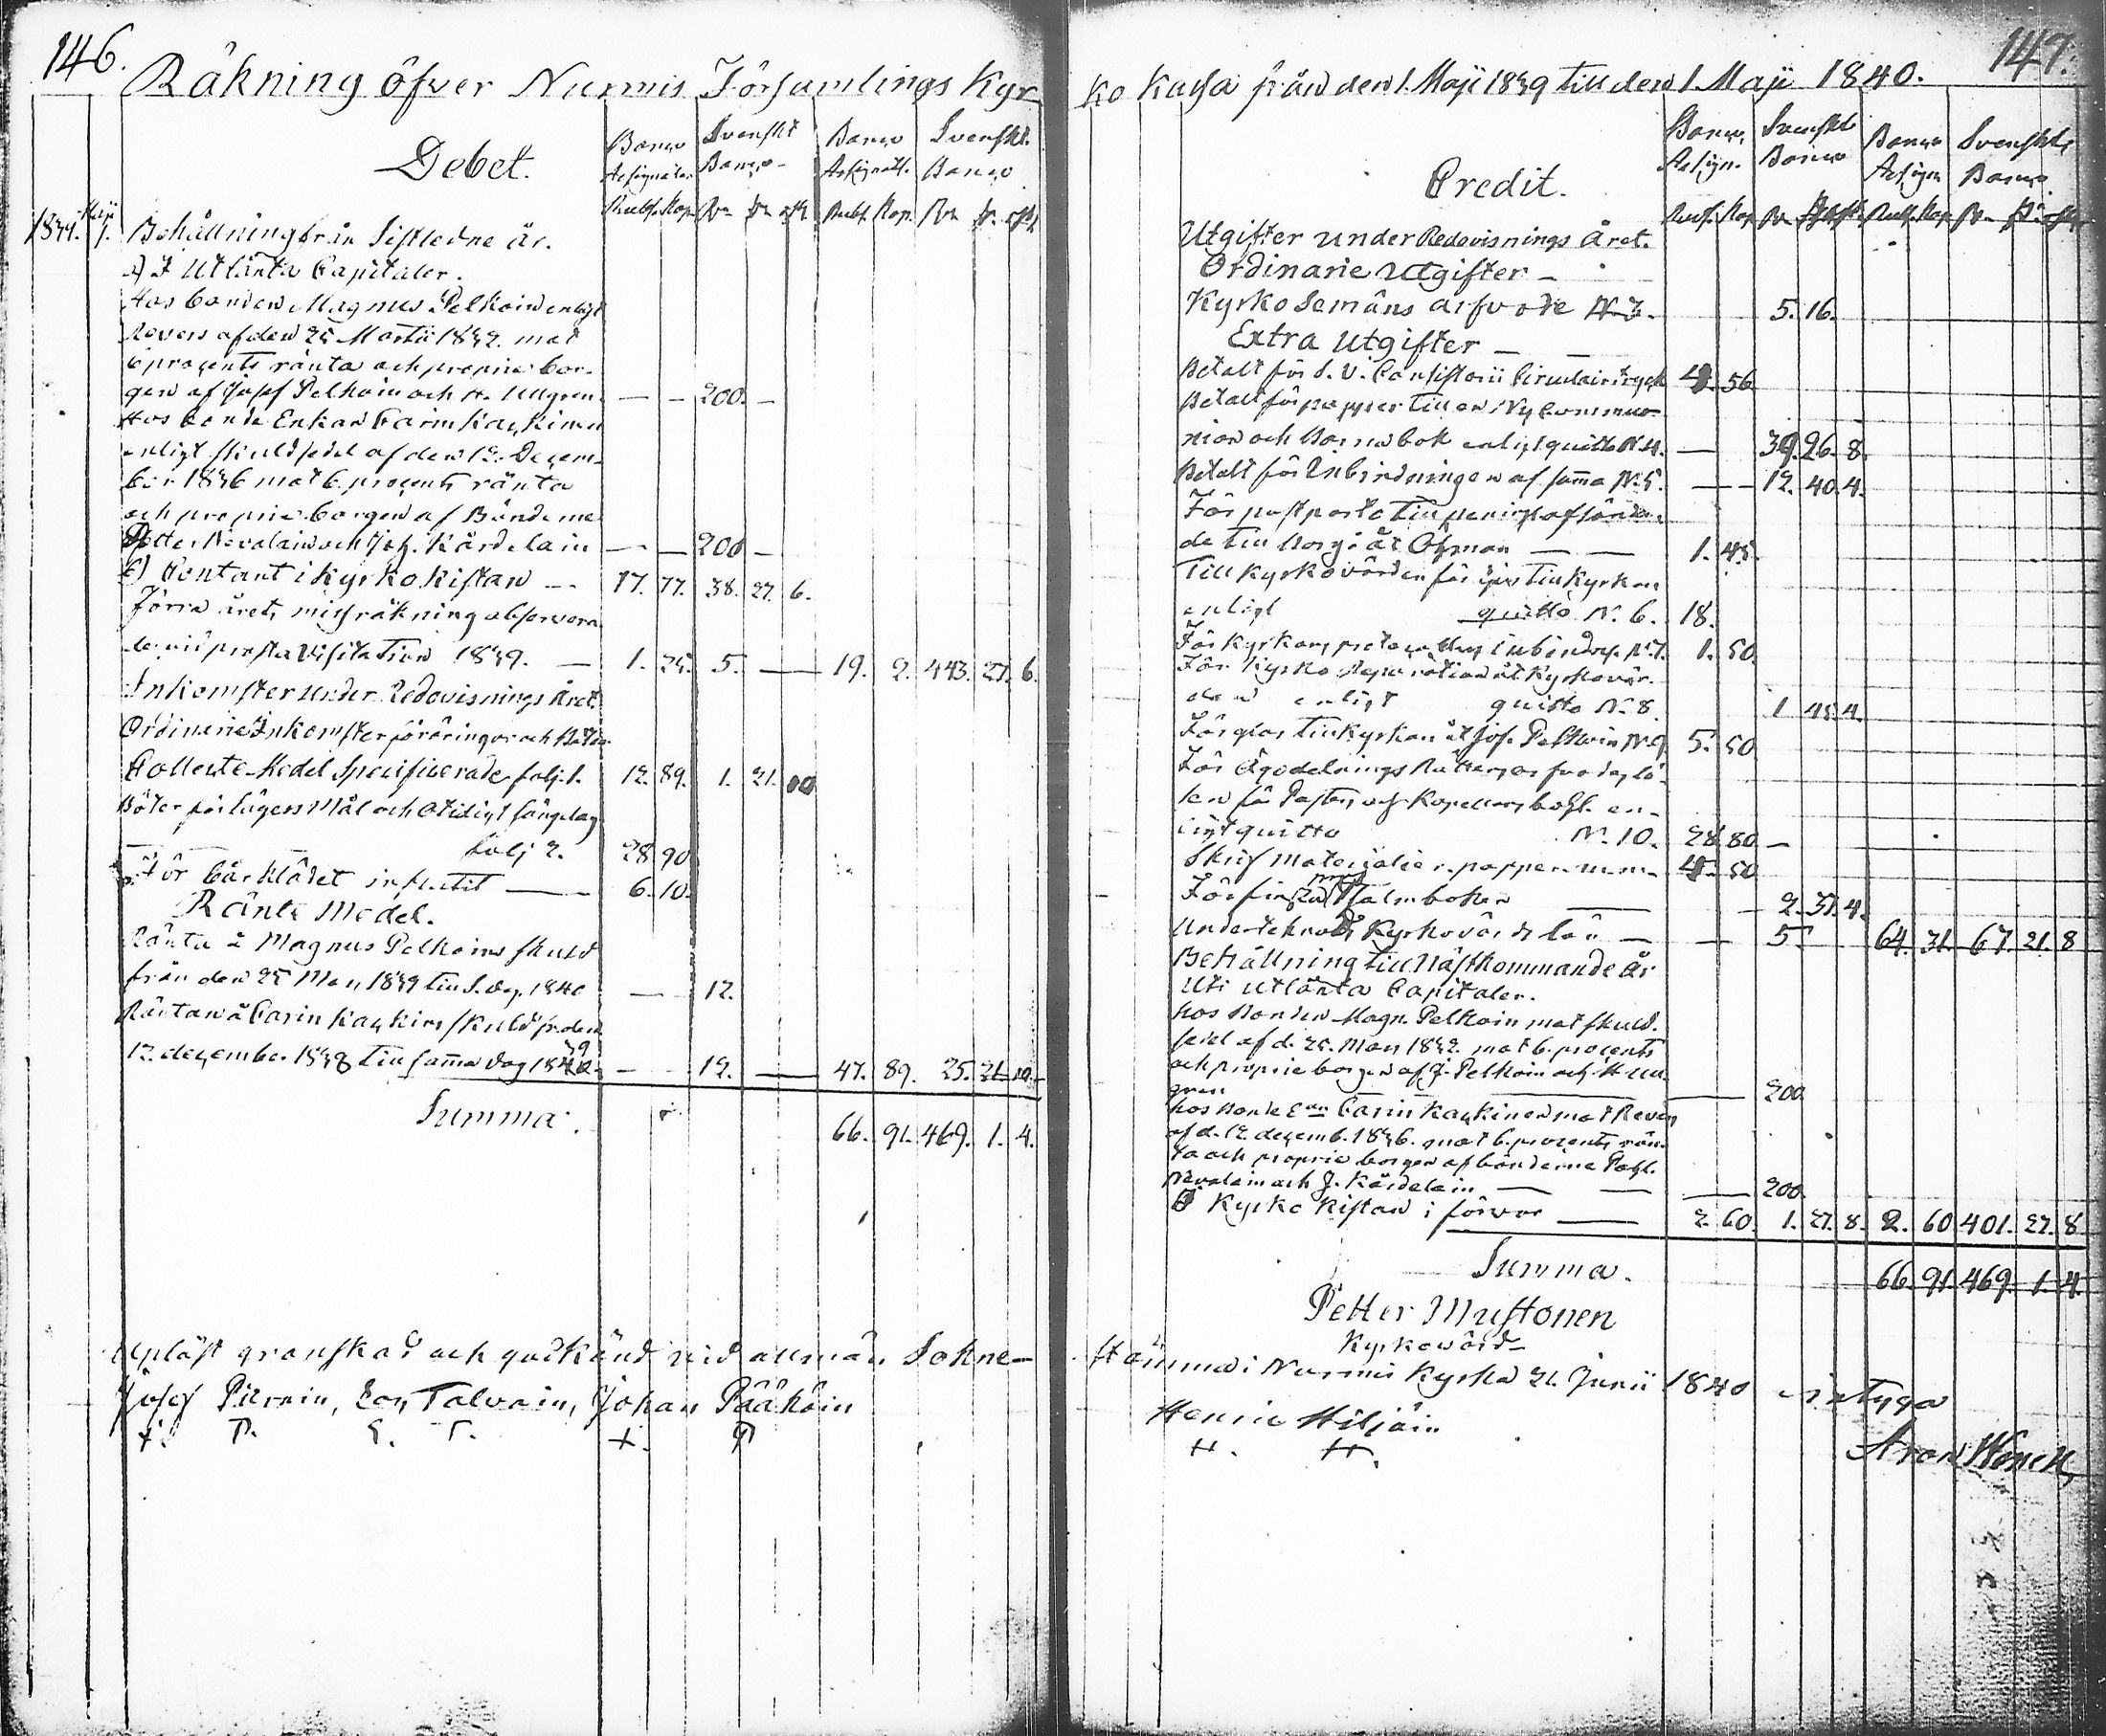 146.
Räkning öfver Nurmis Församlings Kyr
Debet.
Banco Assignater Svenskt Banco Banco Assignatt. Svenskt Banco
Rub. Kop. Rub. Kop.
1839. Maji 1. Behållning från Sistledne år.
a) I Utlänta Capitaler.
Hos bonden Magnus Pelkoin enligt
Revers af den 25 Martii 1832. mot
6 procents ränta och proprie bor-
gen af Josef Pelkoin och H. Ullgren. — — 200. —
Hos bonde Enkan Carin Kaukinen
enligt skuldsedel af den 12. Decem-
ber 1836 mot 6. procents ränta
och proprie borgen af Bönderne
Petter Nevalain och Joh. Kärdelain — — 200 —
b) Contant i Kyrko Kistan — 17. 77. 38. 27. 6.
Förra årets missräkning observera-
de vid prosta Visitation 1839. — 1. 25. 5. — 19. 2. 443. 27. 6.
Inkomster under Redovisnings Året
Ordinarie Inkomster föräringar och
Collecte Medel Specificerade folj. 1. 12. 89. 1. 21. 00
Böter för Lägers Mål och Otidigt sängelag
folj 2. 28. 90
För bårklädet influtit — 6. 10.
Ränte Medel.
Ränta å Magnus Pelkoins skuld
från den 25 Mars 1839 till s. dag. 1840 — 12.
Räntan å Carin Kaukins skuld fr. den
12. december 1838 till samma dag 1839 — 12. — 47. 89. 25. 21. 10.
Summa. 66. 91. 469. 1. 4.
Upläst granskad och godkänd vid allmän Sokne-
Josef Piirain, Talvain, Johan Pääköin
P. T. P
147.
ko Kassa från den 1. Maji 1839 till den 1. Maji 1840.
Credit.
Banco Assign. Svenskt Banco Banco Assign Svenskt Banco.
Rub. Kop. Rub. Kop.
Utgifter under Redovisnings Året.
Ordinarie Utgifter —
Kyrko Semäns arfvode N. 3. 5. 16.
Extra Utgifter —
Betalt för S. V. Consistorii Circulair tryck 4. 56
Betalt för papper till en Ny Commu-
nion och Barnabok enligt quitto N. 4. — 39. 26. 8.
Betalt för Inbindningen af samma N. 5. — 12. 40. 4.
För postporto till penningars afsändan-
de till Borgå åt Öhman — — 1. 45.
Till Kyrkovärden för till Kyrkan
enligt quitto N. 6. 18.
För Kyrkans inbindning N. 7. 1. 50.
För Kyrko Reparation åt Kyrkovär-
den enligt quitto N. 8. 1 45 4.
För glas till Kyrkan åt Jos. Pelkoin N. 9 5. 50
För Ägodelnings Rättens
len för Pastors och Kapellans bohl. en-
ligt quitto N. 10. 28 80. —
Skrif materialier papper 4. 50
För finska Psalmboken — 2. 37. 4.
Undertecknads Kyrkovärds lön — — 5. 64. 31. 67. 21. 8
Behållning till Nästkommande År
Uti utlänta Capitaler.
hos Bonden Magn. Pelkoin mot skuld-
sedel af d. 25. Mars 1832. mot 6. procents
och proprie borgen af J. Pelkoin och H Ull-
gren — 200.
hos Bonde Carin Kaukinen mot Revers
af d. 12 decemb. 1836. mot 6. procents rän-
ta och proprie borgen af bönderne
Nevalain och J. Kärdelain — — — 200.
I Kyrko Kistan i förvar — 2. 60. 1. 27. 8. 2. 60 401. 27. 8
Summa. 66. 91. 469. 1. 4.
Petter Mustonen
Kyrkovärd
Stämma i Nurmis Kyrka 21. Junii 1840 intyga
Henric Hiljain
H. H.
Aron